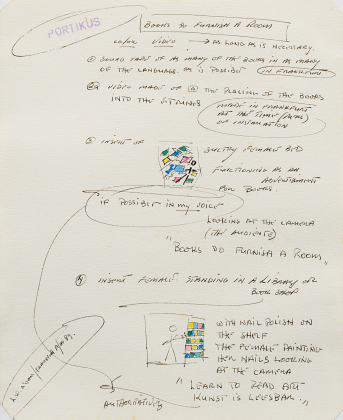 PORTIKUS
BOOKS DO FURNISH A ROOM
COLOR VIDEO → AS LONG AS IS NECESSARY.
① SOUND TAPE OF AS MANY OF THE BOOKS IN AS MANY
OF THE LANGUAGE. AS IS POSSIBLE IN FRANKFURT
② VIDEO MADE OF THE PLACING OF THE BOOKS
INTO THE
MADE IN FRANKFURT
AT THE TIME
OF INSTALLATION
③ INSERT OF SULTRY FEMALE
FUNCTIONING AS AN
ADVERTISEMENT
FOR BOOKS.
IF POSSIBLE IN MY VOICE
LOOKING AT THE CAMERA
(THE AUDIENCE)
"BOOKS DO FURNISH A ROOM"
④ INSERT FEMALE STANDING IN A LIBRARY OR
BOOK SHOP
WITH NAIL POLISH ON
THE SHELF
THE FEMALE PAINTING
HER NAILS LOOKING
AT THE CAMERA
"LEARN TO READ ART
KUNST IS LEESBAR."